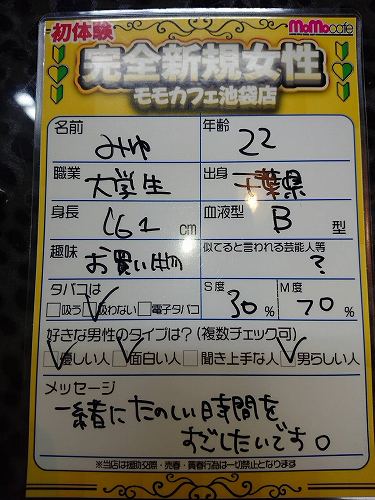 初体験
MoMocafe
完全新規女性
モモカフェ池袋店
名前 みゆ 年齢 22
職業 大学生 出身 千葉県
身長 161 cm 血液型 B 型
趣味 お買い物 似てると言われる芸能人等 ?
タバコは S度 M度
吸う 吸わない 電子タバコ 30% 70%
好きな男性のタイプは?(複数チェック可)
優しい人 面白い人 聞き上手な人 男らしい人
メッセージ
一緒にたのしい時間を
すごしたいです。
※当店は援助交際・売春・買春行為は一切禁止となります